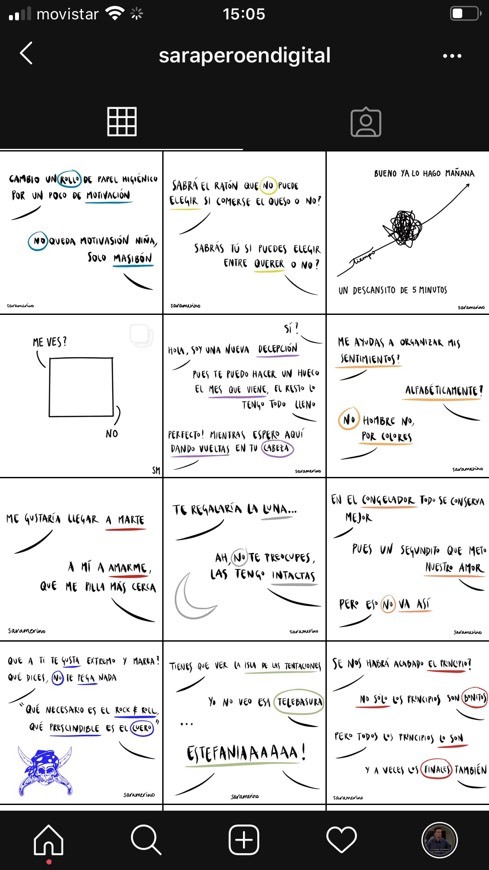 movistar
15:05
saraperoendigital
CAMBIO UN ROLLO DE PAPEL HIGIÉNICO
POR UN POCO DE MOTIVACIÓN
NO QUEDA MOTIVASIÓN NIÑA,
SOLO MASIBÓN
saramerino
SABRÁ EL RATÓN QUE NO PUEDE
ELEGIR SI COMERSE EL QUESO O NO?
SABRÁS TÚ SI PUEDES ELEGIR
ENTRE QUERER O NO?
saramerino
BUENO YA LO HAGO MAÑANA
tiempo
UN DESCANSITO DE 5 MINUTOS
saramerino
ME VES?
NO
SM
SÍ?
HOLA, SOY UNA NUEVA DECEPCIÓN
PUES TE PUEDO HACER UN HUECO
EL MES QUE VIENE, EL RESTO LO
TENGO TODO LLENO
PERFECTO! MIENTRAS ESPERO AQUÍ
DANDO VUELTAS EN TU CABEZA
saramerino
ME AYUDAS A ORGANIZAR MIS
SENTIMIENTOS?
ALFABÉTICAMENTE?
NO HOMBRE NO,
POR COLORES
saramerino
ME GUSTARÍA LLEGAR A MARTE
A MÍ A AMARME,
QUE ME PILLA MÁS CERCA
saramerino
TE REGALARÍA LA LUNA...
AH, NO TE PREOCUPES,
LAS TENGO INTACTAS
saramerino
EN EL CONGELADOR TODO SE CONSERVA
MEJOR
PUES UN SEGUNDITO QUE METO
NUESTRO AMOR
PERO ESO NO VA ASÍ
saramerino
QUE A TI TE GUSTA EXTREMO Y MAREA?
QUÉ DICES, NO TE PEGA NADA
"QUÉ NECESARIO ES EL ROCK & ROLL,
QUÉ PRESCINDIBLE ES EL CUERO"
saramerino
TIENES QUE VER LA ISLA DE LAS TENTACIONES
YO NO VEO ESA TELEBASURA
...
ESTEFANIAAAAAA!
saramerino
SE NOS HABRÁ ACABADO EL PRINCIPIO?
NO SOLO LOS PRINCIPIOS SON BONITOS
PERO TODOS LOS PRINCIPIOS LO SON
Y A VECES LOS FINALES TAMBIÉN
saramerino